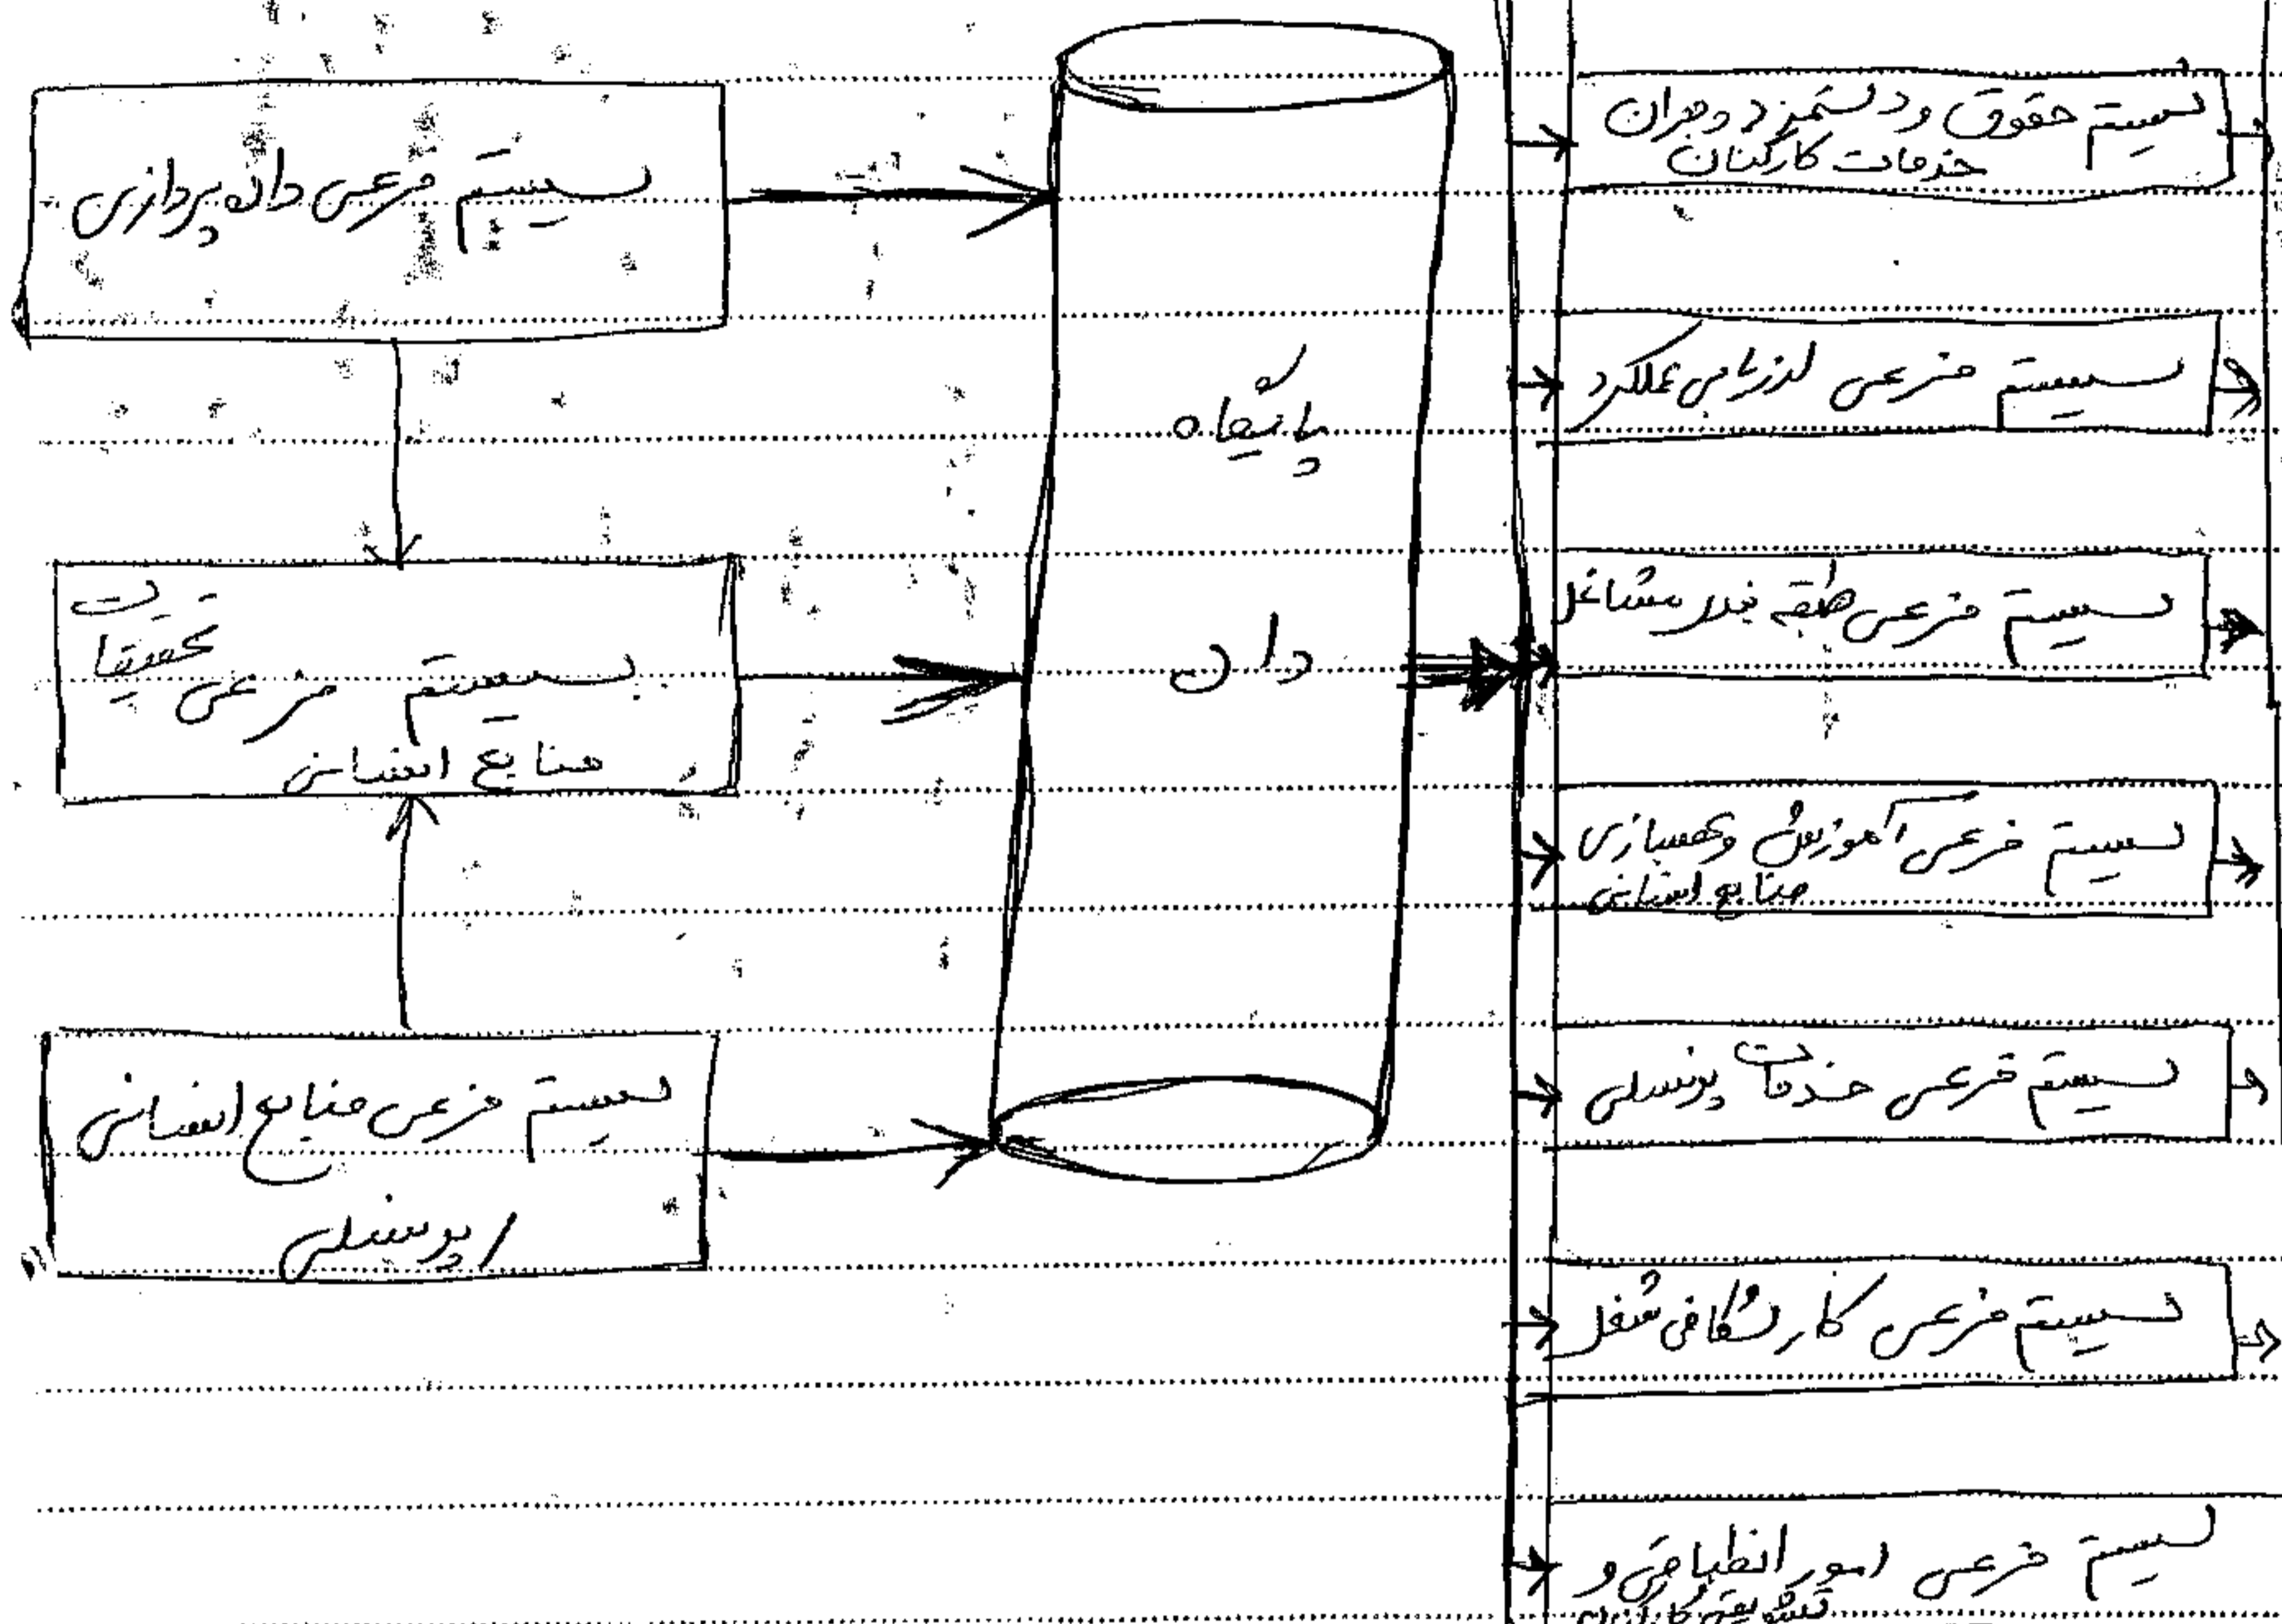 سیستم فرعی داده پردازی
سیستم فرعی تحقیقات
منابع انسانی
سیستم فرعی منابع انسانی
/ پرسنلی
پایگاه
داده
سیستم حقوق و دستمزد و جبران
خدمات کارکنان
سیستم فرعی ارزیابی عملکرد
سیستم فرعی طبقه بندی مشاغل
سیستم فرعی آموزش و بهسازی
منابع انسانی
سیستم فرعی خدمات پرسنلی
سیستم فرعی کارشکافی شغل
سیستم فرعی امور انظباطی و
تشویقی کارکنان